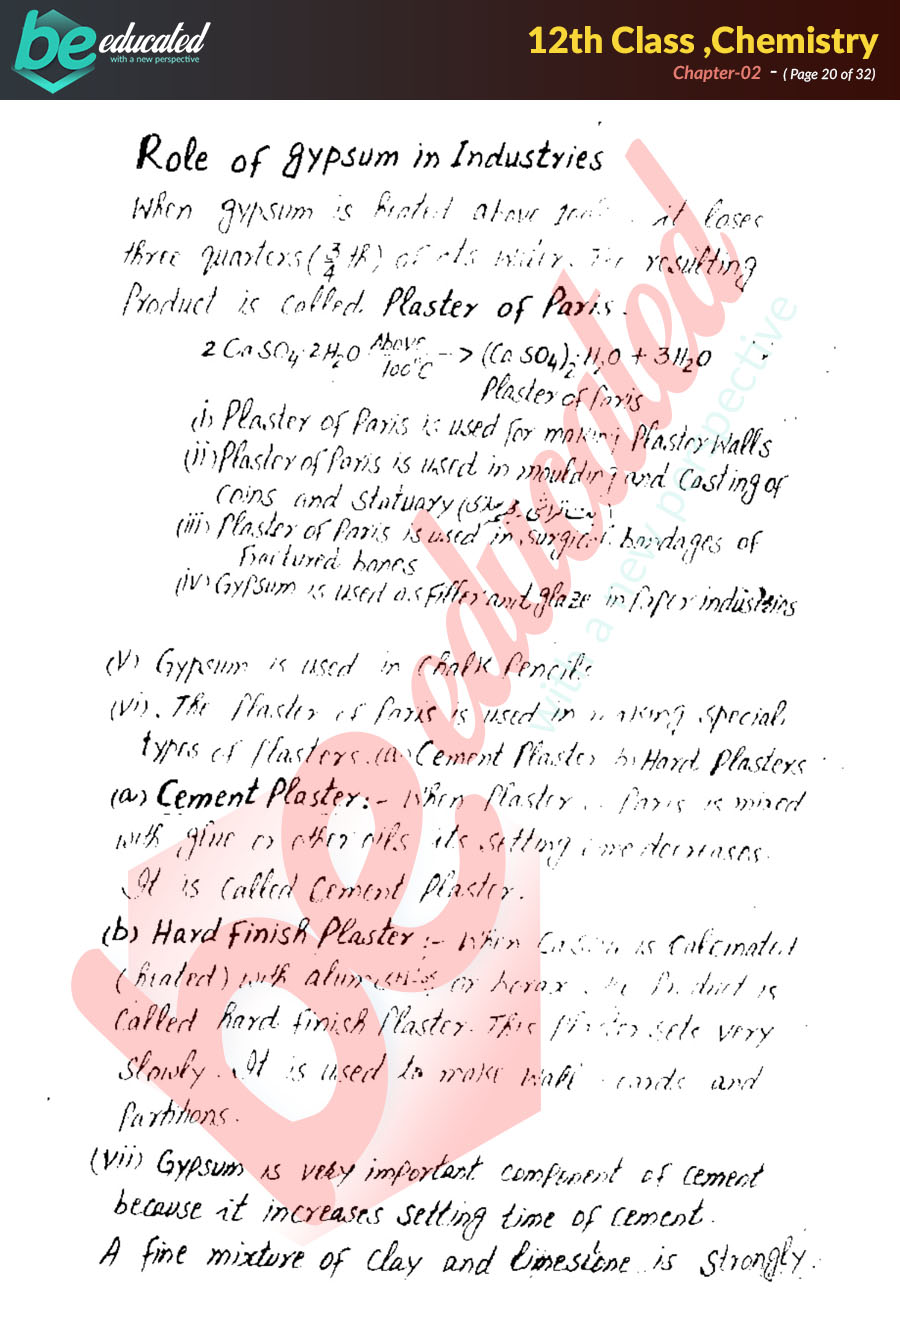 be educated
with a new perspective
12th Class ,Chemistry
Chapter-02 - ( Page 20 of 32)
Role of gypsum in Industries
When gypsum is heated above it loses
three quarters (3/4 th) of its water. The resulting
Product is called Plaster of Paris.
2CaSO4·2H2O Above 100°C -> (CaSO4)2·H2O + 3H2O
Plaster of Paris
(i) Plaster of Paris is used for making Plaster Walls
(ii) Plaster of Paris is used in moulding and Casting of
Coins and Statuary
(iii) Plaster of Paris is used in surgical bandages of
fractured bones
(iv) Gypsum is used as Filler and glaze in Paper industries
(v) Gypsum is used in Chalk Pencils
(vi). The Plaster of Paris is used in making special
types of Plasters. (a) Cement Plaster b) Hard Plasters
(a) Cement Plaster:- When Plaster of Paris is mixed
with glue or other oils its setting time decreases.
It is called Cement Plaster.
(b) Hard Finish Plaster:- When is Calcinated
(heated) with or borax the Product is
Called hard finish Plaster. This Plaster sets very
Slowly. It is used to make Wall and
Partitions.
(vii) Gypsum is very important component of cement
because it increases setting time of cement.
A fine mixture of Clay and limestone is strongly.
be educated
with a new perspective